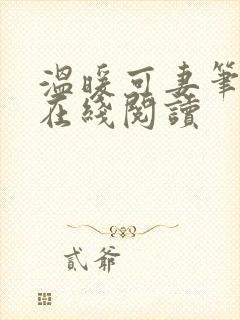 溫暖可妻筆
在綫閱讀
貳爺